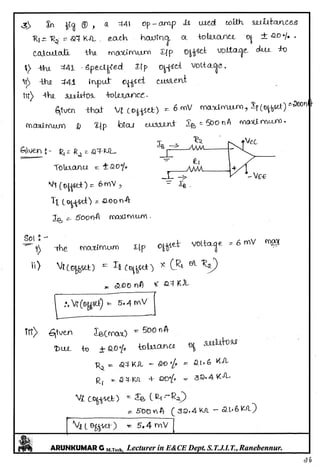 3) In fig ①, a 741 op-amp is used with resistances
R₁ = R₂ = 27 KΩ. each having a tolerance of ± 20%.
calculate the maximum I/p offset voltage due to
i) the 741 specified I/p offset voltage.
ii) the 741 input offset current
iii) the resistor tolerance.
Given that VI (offset) = 6 mV maximum, II (offset) = 200nA
maximum & I/p bias current IB = 500 nA maximum.
Given :- R₁ = R₂ = 27KΩ
Tolerance = ± 20%
VI (offset) = 6mV,
II (offset) = 200nA
IB = 500nA maximum.
IB →
R₂
+VCC
R₁
→ IB
-VEE
Sol :-
i) The maximum I/p offset voltage = 6 mV max
ii) VI (offset) = II (offset) × (R₁ or R₂)
= 200 nA × 27 KΩ
∴ VI (offset) = 5.4 mV
iii) Given IB(max) = 500 nA
Due to ± 20% tolerance of resistors
R₂ = 27 KΩ - 20% = 21.6 KΩ
R₁ = 27 KΩ + 20% = 32.4 KΩ
VI (offset) = IB (R₁ - R₂)
= 500 nA (32.4 KΩ - 21.6 KΩ)
VI (offset) = 5.4 mV
ARUNKUMAR G M.Tech, Lecturer in E&CE Dept. S.T.J.I.T., Ranebennur.